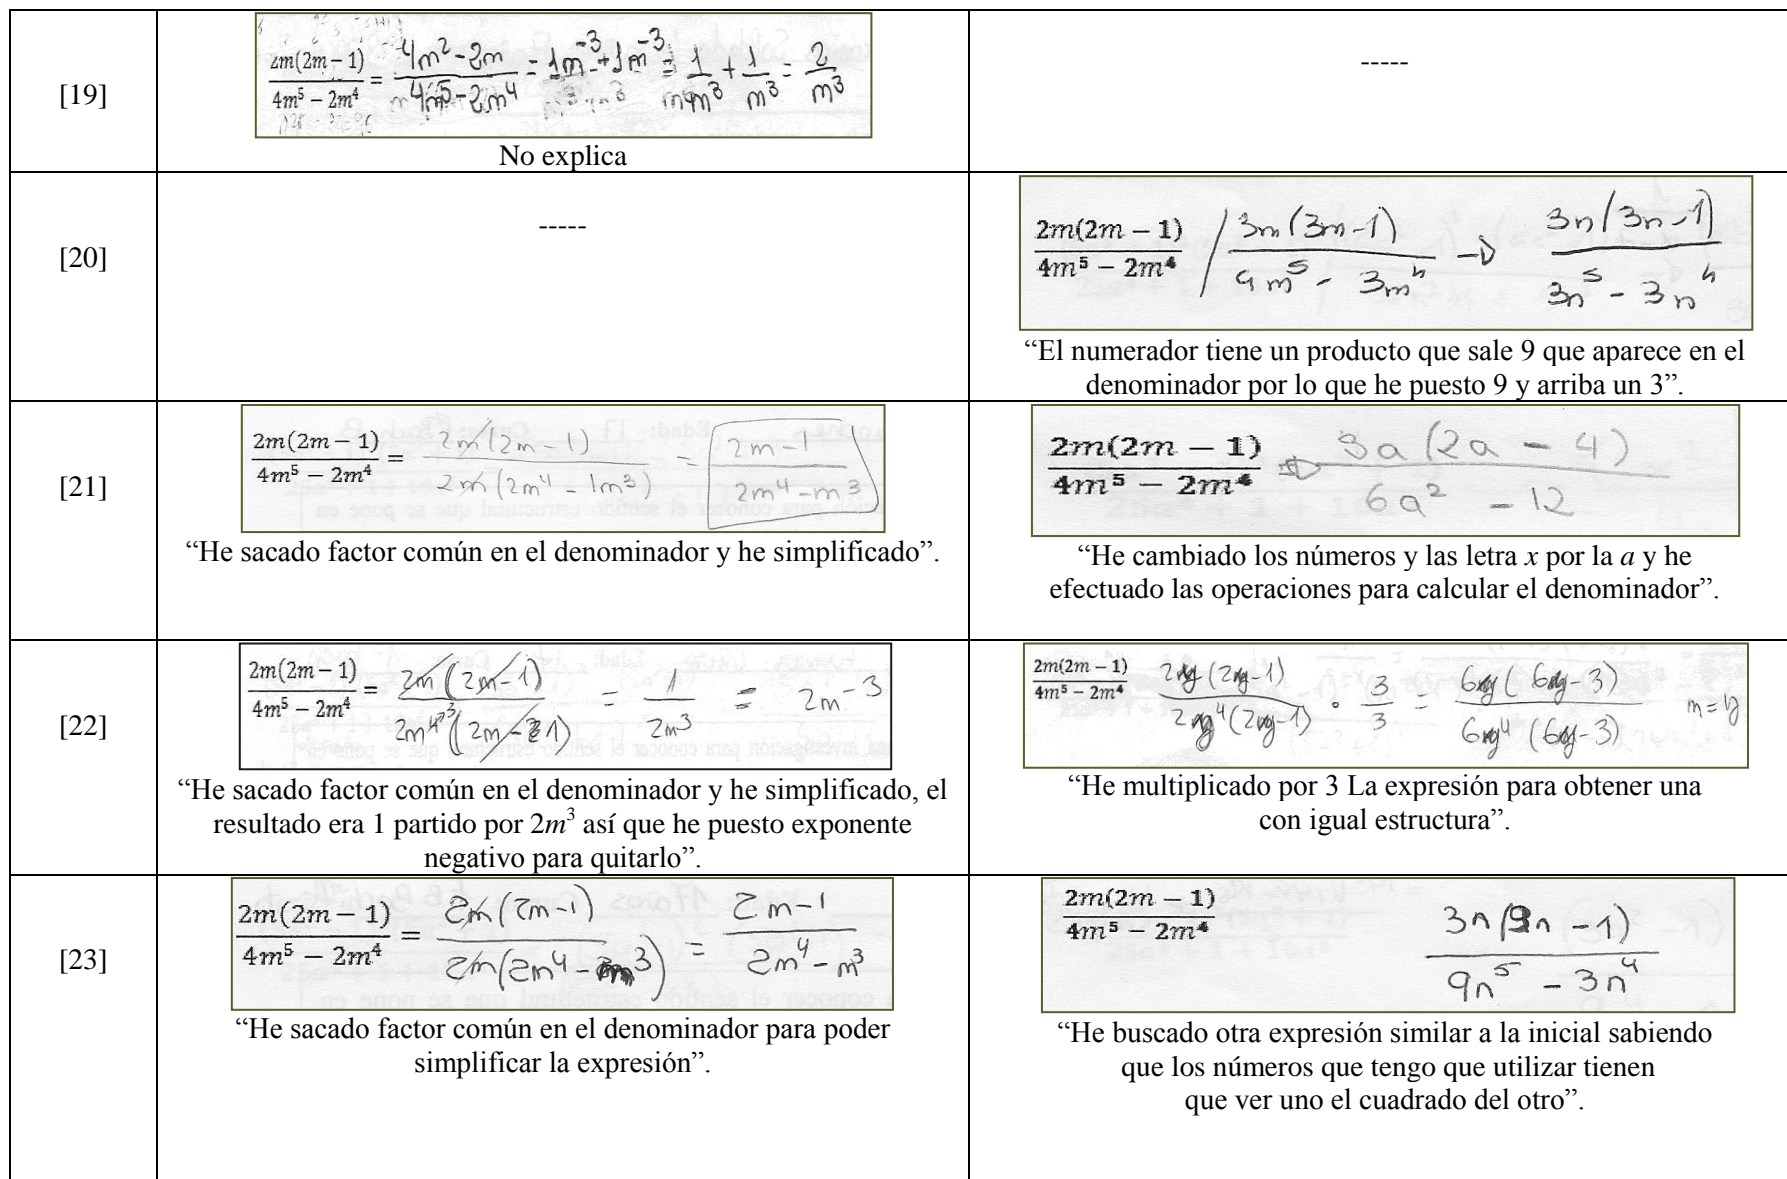 [19]
2m(2m − 1)/4m⁵ − 2m⁴ = 4m² − 2m/4m⁵ − 2m⁴ = 1m⁻³ + 1m⁻³ = 1/m³ + 1/m³ = 2/m³
No explica
-----
[20]
-----
2m(2m − 1)/4m⁵ − 2m⁴ / 3m(3m − 1)/9m⁵ − 3m⁴ → 3n(3n − 1)/3n⁵ − 3n⁴
“El numerador tiene un producto que sale 9 que aparece en el
denominador por lo que he puesto 9 y arriba un 3”.
[21]
2m(2m − 1)/4m⁵ − 2m⁴ = 2m(2m − 1)/2m(2m⁴ − 1m³) = 2m − 1/2m⁴ − m³
“He sacado factor común en el denominador y he simplificado”.
2m(2m − 1)/4m⁵ − 2m⁴ ⇒ 3a(2a − 4)/6a² − 12
“He cambiado los números y las letra x por la a y he
efectuado las operaciones para calcular el denominador”.
[22]
2m(2m − 1)/4m⁵ − 2m⁴ = 2m(2m − 1)/2m⁴ ³(2m − 1) = 1/2m³ = 2m⁻³
“He sacado factor común en el denominador y he simplificado, el
resultado era 1 partido por 2m³ así que he puesto exponente
negativo para quitarlo”.
2m(2m − 1)/4m⁵ − 2m⁴ 2y(2y − 1)/2y⁴(2y − 1) · 3/3 = 6y(6y − 3)/6y⁴(6y − 3) m = y
“He multiplicado por 3 La expresión para obtener una
con igual estructura”.
[23]
2m(2m − 1)/4m⁵ − 2m⁴ = 2m(2m − 1)/2m(2m⁴ − m³) = 2m − 1/2m⁴ − m³
“He sacado factor común en el denominador para poder
simplificar la expresión”.
2m(2m − 1)/4m⁵ − 2m⁴ 3n(9n − 1)/9n⁵ − 3n⁴
“He buscado otra expresión similar a la inicial sabiendo
que los números que tengo que utilizar tienen
que ver uno el cuadrado del otro”.